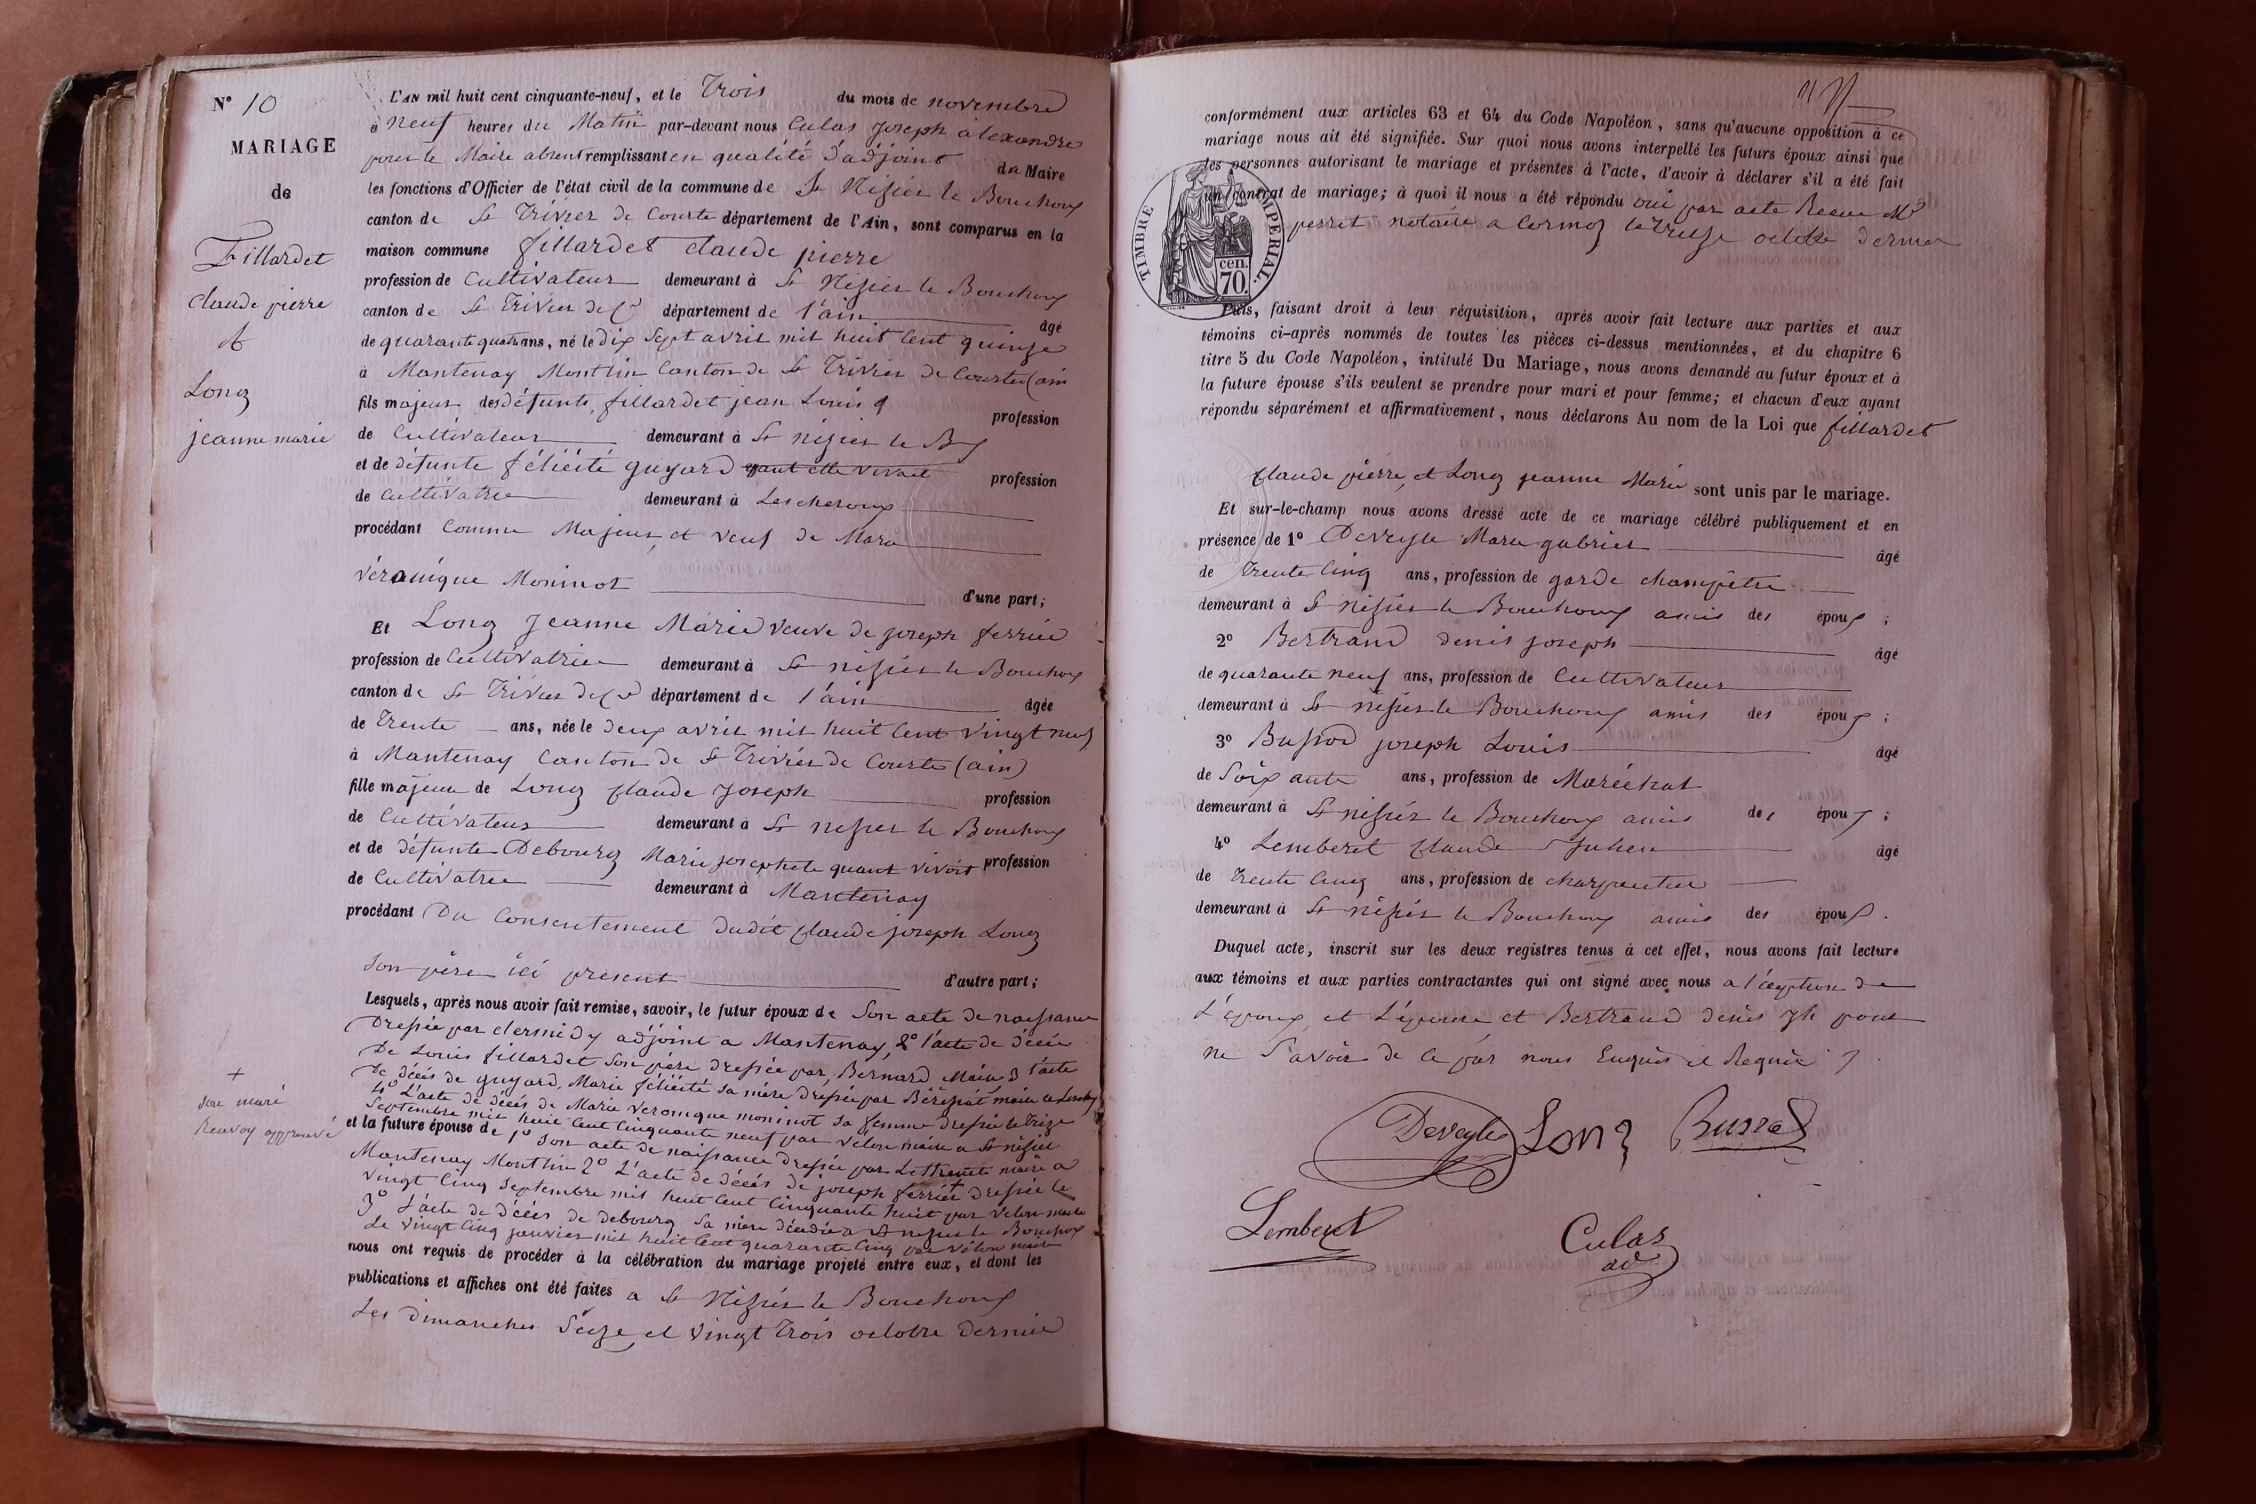 N° 10
MARIAGE
de
Fillardet
claude pierre
et
Long
jeanne marie
L'AN mil huit cent cinquante-neuf, et le Trois du mois de novembre
à neuf heures du Matin par-devant nous Culas joseph alexandre
pour le Maire absent remplissant en qualité d'adjoint du Maire
les fonctions d'Officier de l'état civil de la commune de St Nizier le Bouchoux
canton de St Trivier de Courte département de l'Ain, sont comparus en la
maison commune fillardet claude pierre
profession de Cultivateur demeurant à St Nizier le Bouchoux
canton de St Trivier de Ctes département de l'ain âgé
de quarante quatre ans, né le Dix Sept avril mil huit Cent quinze
à Mantenay Montlin Canton de St Trivier de Courtes (ain
fils majeur des défunts, fillardet jean Louis profession
de Cultivateur demeurant à St nizier le Bx
et de défunte félicité guyard quant elle vivait profession
de Cultivatrice demeurant à Lescheroux
procédant Comme Majeur, et veuf de Marie
véronique Moninot d'une part;
Et Long Jeanne Marie veuve de joseph ferrier
profession de Cultivatrice demeurant à St nizier le Bouchoux
canton de St Trivier de Ctes département de l'ain âgée
de Trente ans, née le deux avril mil huit Cent vingt neuf
à Mantenay Canton de St Trivier de Courtes (ain)
fille majeure de Long Claude Joseph profession
de Cultivateur demeurant à St nizier le Bouchoux
et de défunte Debourg Marie josephete quant vivoit profession
de Cultivatrice demeurant à Mantenay
procédant Du Consentement dudit Claude joseph Long
son père ici présent d'autre part;
Lesquels, après nous avoir fait remise, savoir, le futur époux de Son acte de naissance
Dressée par clermidy adjoint a Mantenay, 2° l'acte de décée
De Louis fillardet Son père dressée par Bernard Maire 3 l'acte
de décés de guyard, Marie félicité sa mère dressée par maire a
4° L'acte de décés de Marie veronique moninot sa femme dressée le treize
Septembre mil huit Cent Cinquante neuf par velon maire a St nizier
et la future épouse de 1° Son acte de naissance dressée par maire a
Mantenay Montlin 2° L'acte de décés de joseph ferrier + dressée le
vingt Cinq Septembre mil huit Cent Cinquante huit par velon maire
3° L'acte de décés de debourg sa mère décédée a St nizier le Bouchoux
Le vingt Cinq janvier mil huit Cent quarante Cinq par vélon maire
+
son mari
Renvoy approuvé
nous ont requis de procéder à la célébration du mariage projeté entre eux, et dont les
publications et affiches ont été faites a St Nizier le Bouchoux
Les dimanches Seize et vingt Trois octobre dernier
conformément aux articles 63 et 64 du Code Napoléon, sans qu'aucune opposition à ce
mariage nous ait été signifiée. Sur quoi nous avons interpellé les futurs époux ainsi que
les personnes autorisant le mariage et présentes à l'acte, d'avoir à déclarer s'il a été fait
un contrat de mariage; à quoi il nous a été répondu oui par acte Recue Me
perret notaire a Cormoz le treize octobre dernier
TIMBRE IMPERIAL.
70. cen.
Puis, faisant droit à leur réquisition, après avoir fait lecture aux parties et aux
témoins ci-après nommés de toutes les pièces ci-dessus mentionnées, et du chapitre 6
titre 5 du Code Napoléon, intitulé Du Mariage, nous avons demandé au futur époux et à
la future épouse s'ils veulent se prendre pour mari et pour femme; et chacun d'eux ayant
répondu séparément et affirmativement, nous déclarons Au nom de la Loi que fillardet
Claude pierre, et Long jeanne Marie sont unis par le mariage.
Et sur-le-champ nous avons dressé acte de ce mariage célébré publiquement et en
présence de 1° Deveyle Marie gabriel âgé
de trente Cinq ans, profession de garde champêtre
demeurant à St nizier le Bouchoux amis des époux;
2° Bertrand denis joseph âgé
de quarante neuf ans, profession de Cultivateur
demeurant à St nizier le Bouchoux amis des époux;
3° Bussod joseph Louis âgé
de Soixante ans, profession de Maréchal
demeurant à St nizier le Bouchoux amis des époux;
4° Lemberet Claude Julien âgé
de trente Cinq ans, profession de charpentier
demeurant à St nizier le Bouchoux amis des époux.
Duquel acte, inscrit sur les deux registres tenus à cet effet, nous avons fait lecture
aux témoins et aux parties contractantes qui ont signé avec nous a l'exeption de
L'époux, et L'épouse et Bertrand denis jh pour
ne Savoir de ce par nous Enquis et Requis
Deveyle Long Bussod
Lemberet Culas
ad